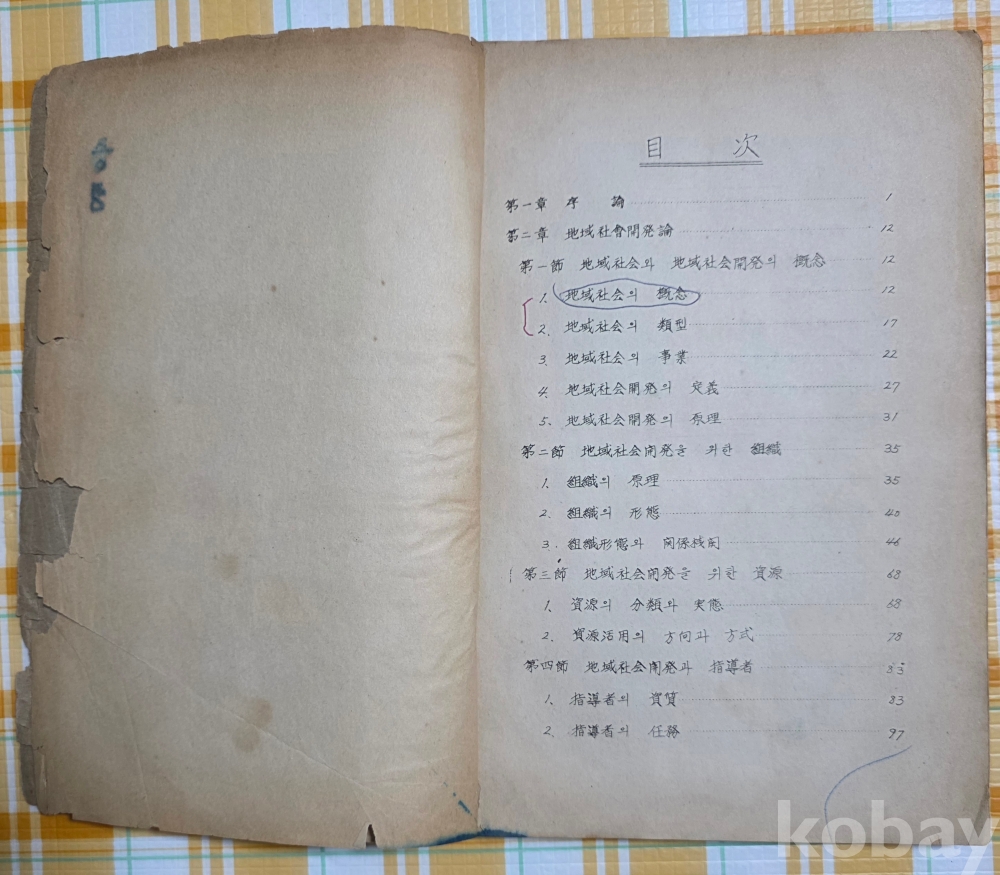 目 次
第一章 序 論 1
第二章 地域社會開発論 12
第一節 地域社会와 地域社会開発의 概念 12
1. 地域社会의 概念 12
2. 地域社会의 類型 17
3. 地域社会의 事業 22
4. 地域社会開発의 定義 27
5. 地域社会開発의 原理 31
第二節 地域社会開発을 위한 組織 35
1. 組織의 原理 35
2. 組織의 形態 40
3. 組織形態와 関係機関 46
第三節 地域社会開発을 위한 資源 68
1. 資源의 分類와 実態 68
2. 資源活用의 方向과 方式 78
第四節 地域社会開発과 指導者 83
1. 指導者의 資質 83
2. 指導者의 任務 97
kobay